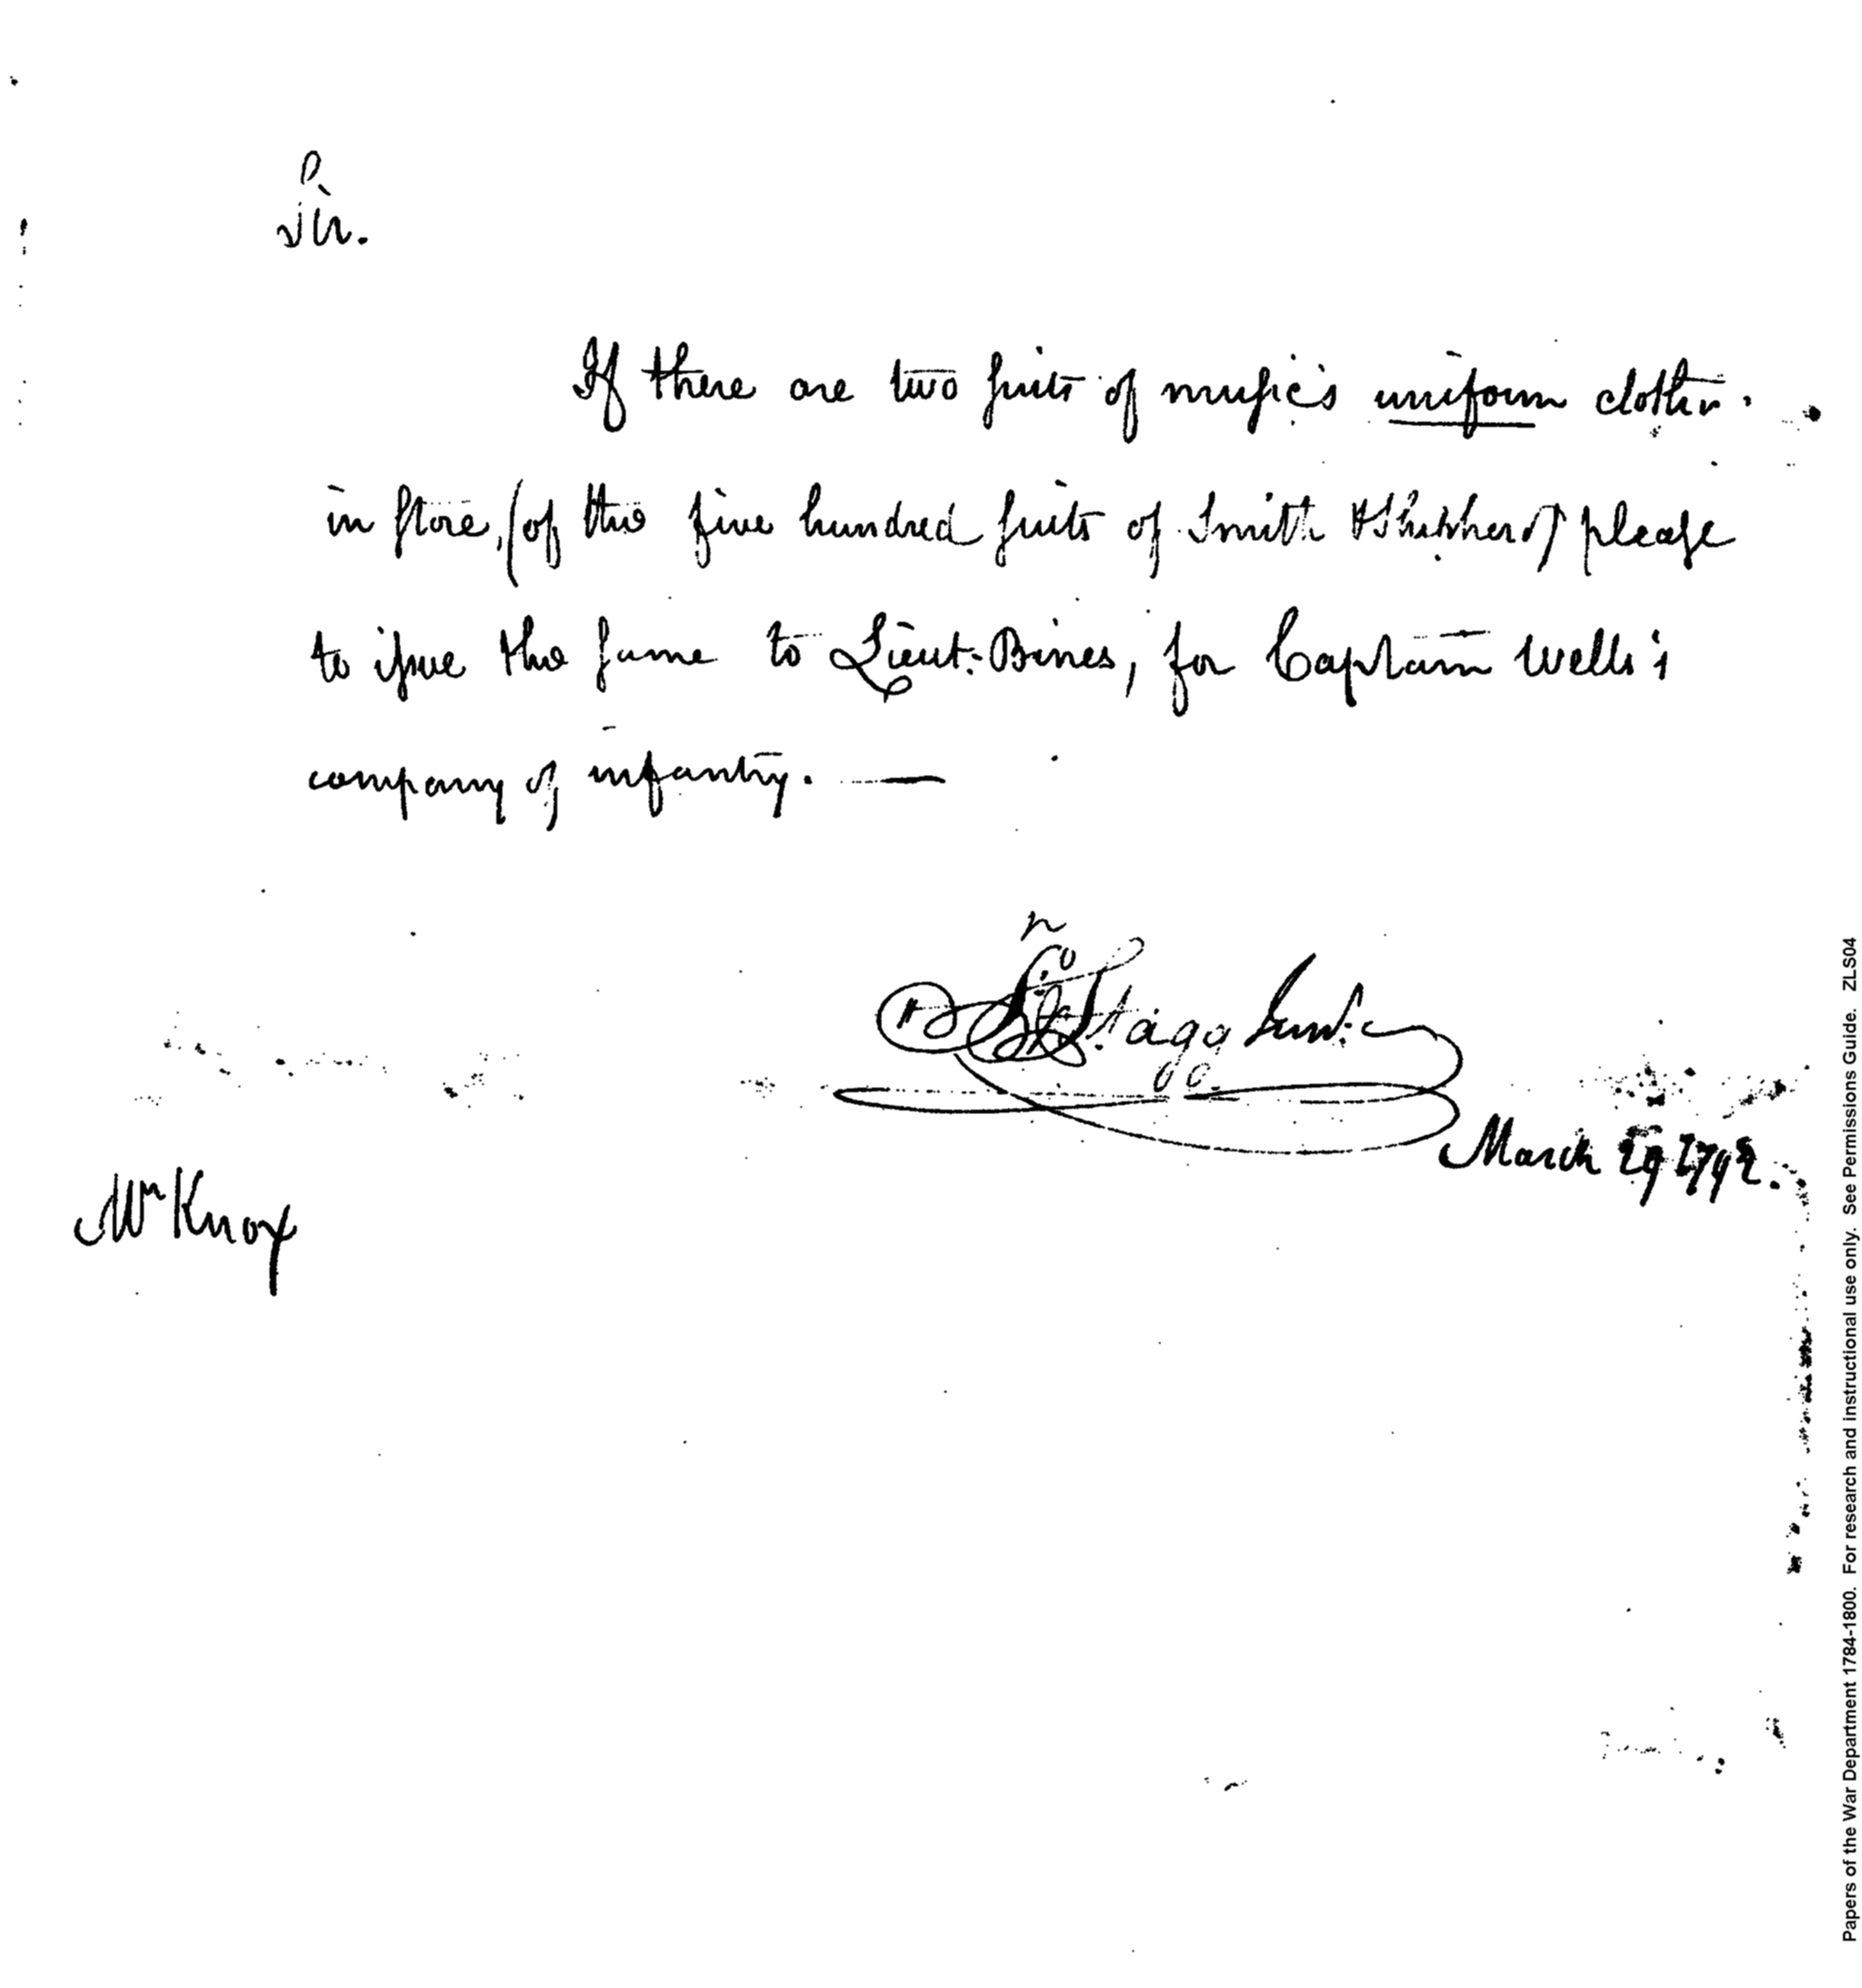 Sir.
If there are two suits of music's uniform clothes.
in store, (of the five hundred suits of Smith & Shepherd) please
to issue the same to Lieut: Bines, for Captain Wells's
company of infantry. —
Stagg Junr.
March 29 1792.
Mr Knox
Papers of the War Department 1784-1800. For research and instructional use only. See Permissions Guide. ZLS04